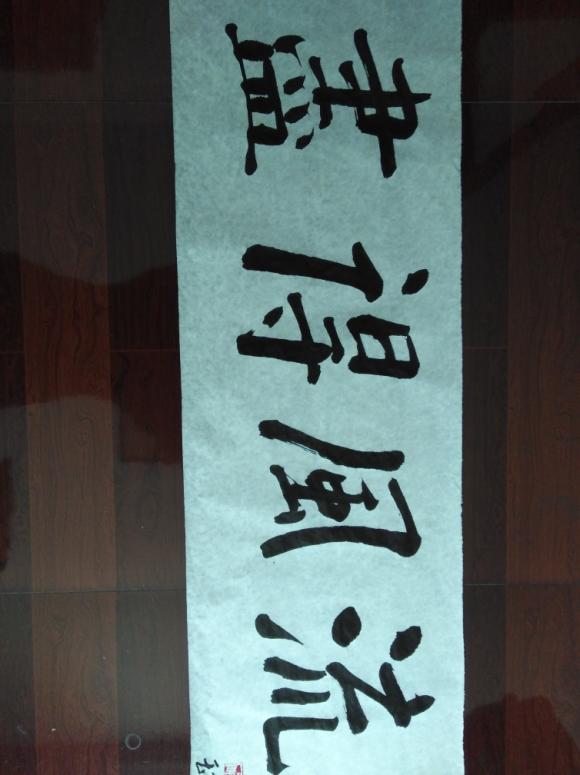 盡得風流